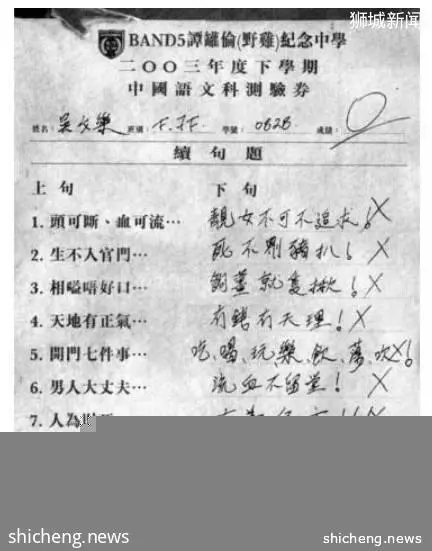 狮城新闻
BAND5譚鑵倫(野雞)紀念中學
二〇〇三年度下學期
中國語文科測驗券
姓名：吳文樂 班別：F.5F. 學號：0828 成績：0
續句題
上句 下句
1. 頭可斷、血可流… 靚女不可不追求！X
2. 生不入官門… 死不劏豬扒！X
3. 相嗌唔好口… 夠薑就隻揪！X
4. 天地有正氣… 有錯冇天理！X
5. 開門七件事… 吃、喝、玩、樂、飲、蕩、吹！X
6. 男人大丈夫… 流血不留堂！X
7. 人為
shicheng.news
shicheng.news